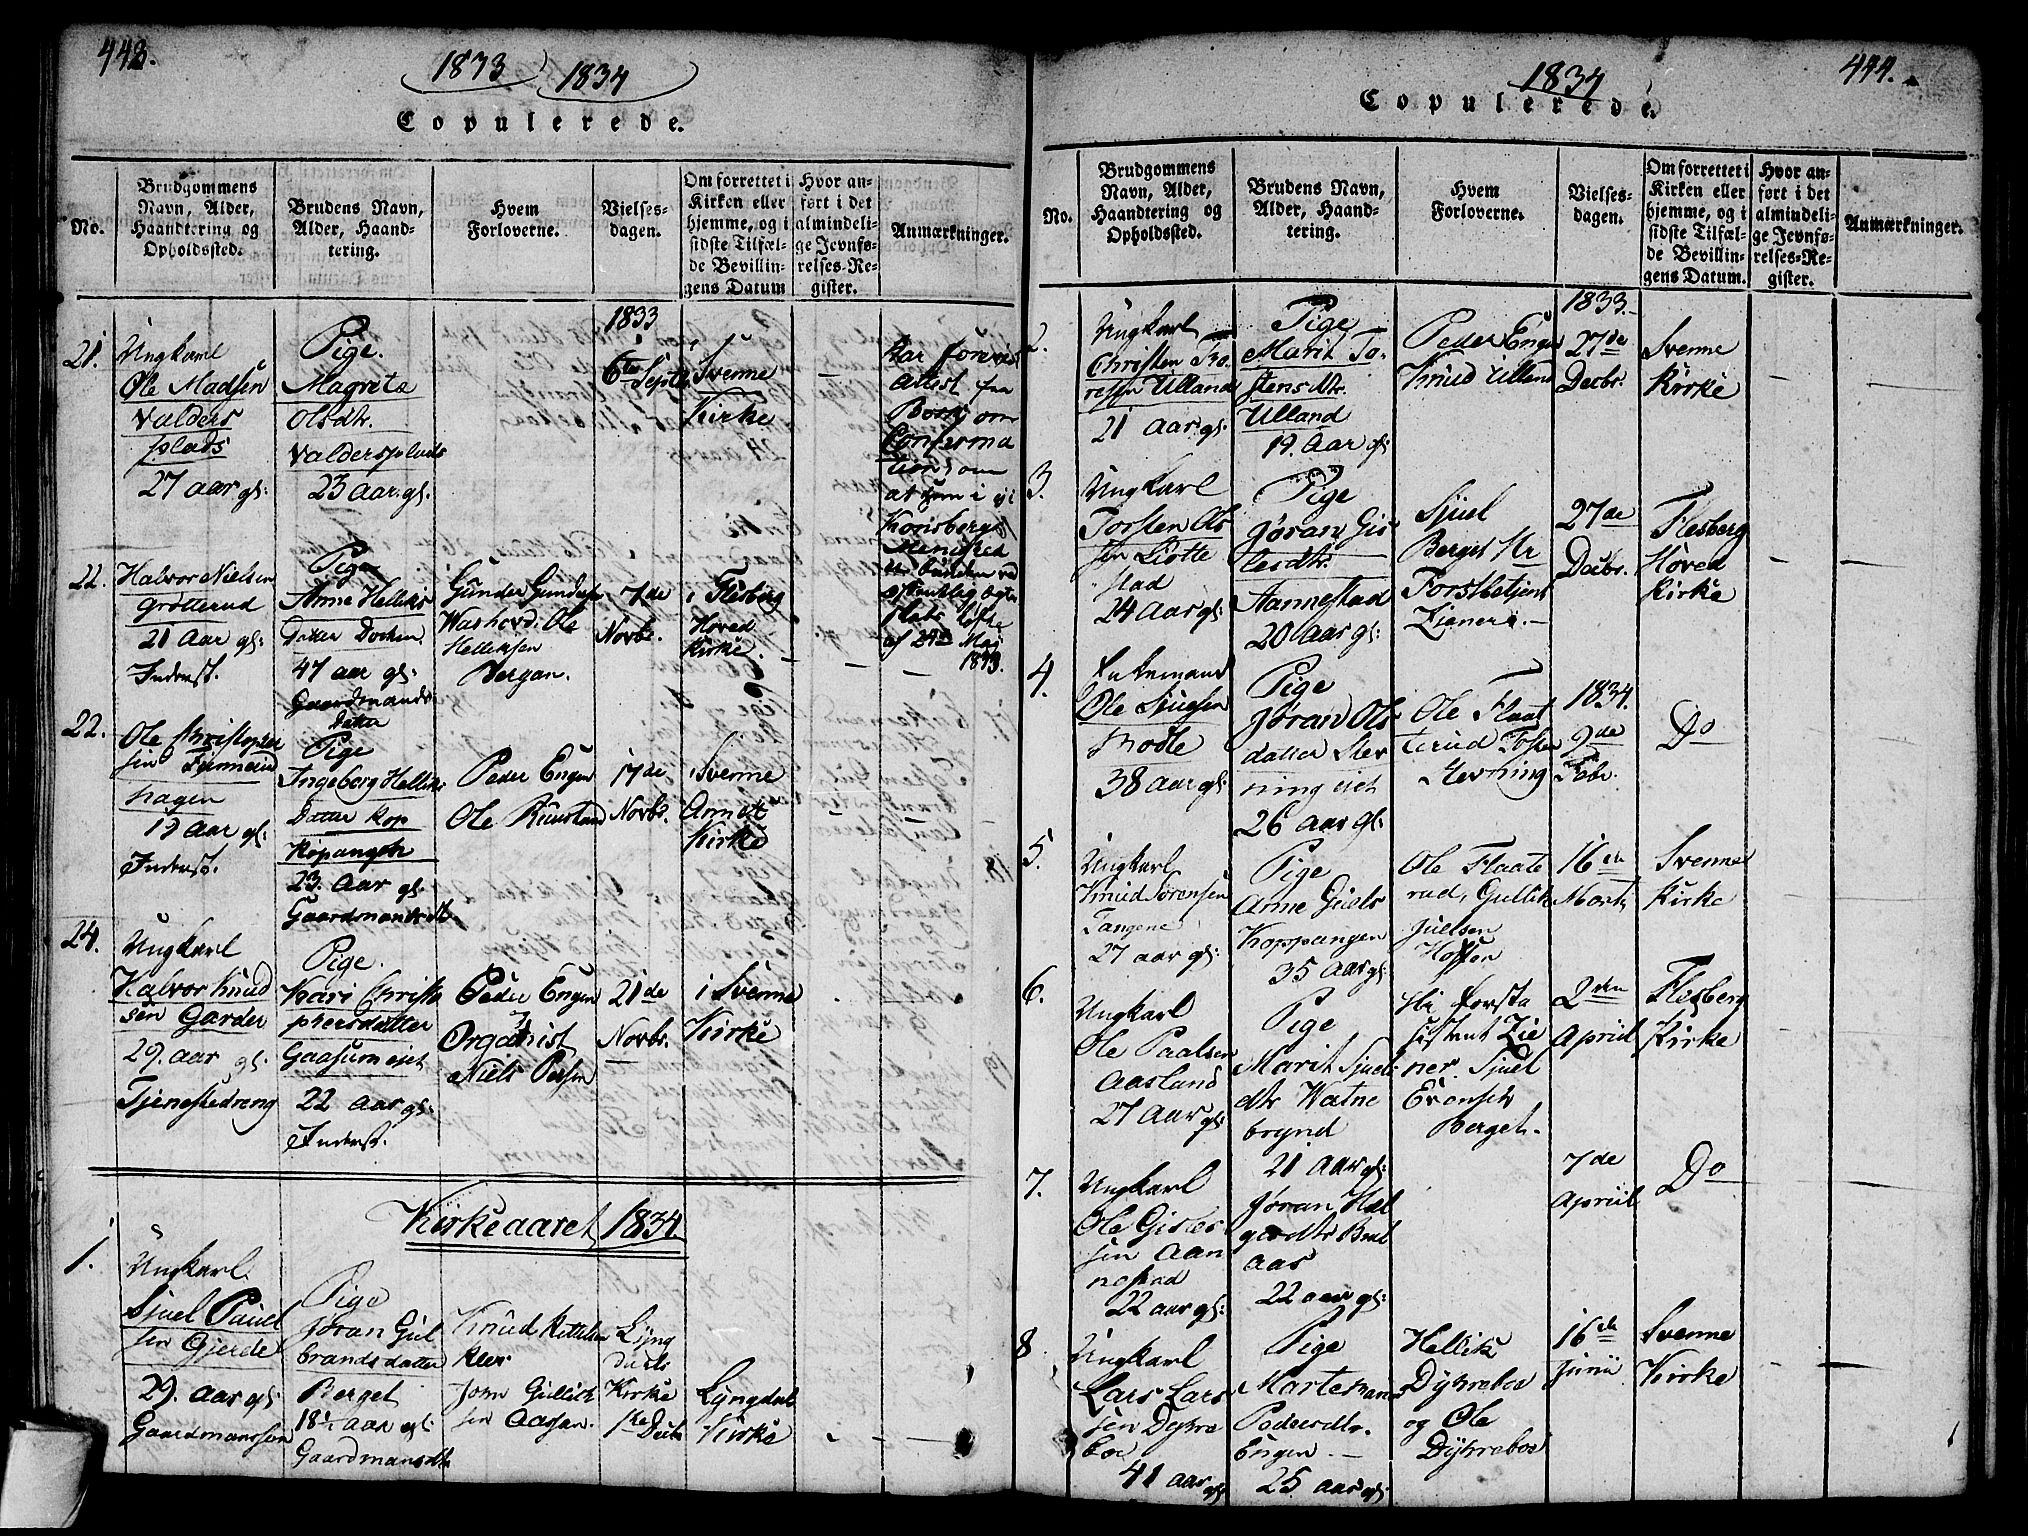 443.
1833
1834
Copulerede.
No.
Brudgommens
Navn, Alder,
Haandtering og
Opholdssted.
Brudens Navn,
Alder, Haand-
tering.
Hvem
Forloverne.
Vielses-
dagen.
Om forrettet i
Kirken eller
hjemme, og i
sidste Tilfæl-
de Bevillin-
gens Datum
Hvor an-
ført i det
almindeli-
ge Jevnfø-
relses-Re-
gister.
Anmærkninger.
21.
Ungkarl
Ole Madsen
Valders
plads
27 aar gl.
Pige.
Magreta
Olsdtr.
Valdersplads
23 aar. gl.
1833
6te Septb
Svenne
Kirke
har
Attest fra
om
Confirma
tion, om
at ham i
Kongsberg
af 24de Maj
1833.
22.
Halvor Nielsen
Grøtterud
21 Aar gl:
Inderst.
Pige
Anne Helliks
Datter Dokken
47 aar gl:
Gaardmands
Datter
Gunder Gunders
Ole
Helliksen
Bergan.
7de
Novbr.
i Flesberg
Hoved
Kirke.
22.
Ole Christophe
sen
hagen
19 Aar gl:
Inderst.
Pige
Ingeborg Helliks
Datter Kop
Kopangen
23. Aar gl.
Gaardmandsdt.
Peder Engen
Ole Ruustand
17de
Novbr.
i Svenne
Annex
Kirke
24.
Ungkarl
Halvor Knud
sen Garder
29. aar gl:
Tjenestedreng
Pige.
Kari Christo
phersdatter
Gaasumeiet
22 aar gl:
Inderst.
Peder Engen
Organist
Niels Persen
21de
Novbr.
i Svenne
Kirke
Kirkeaaret 1834.
1.
Ungkarl.
Sjuel Pauel
sen Gjerde
29. aar gl:
Gaardmanssen
Pige
Jøran Gul
brandsdatter
Berget
18½ aar gl:
Gaardmansdt
Knud Kittelsen
John Gullik
sen Aassen.
Lÿng
dals
Kirke
1te Decb
Lyngdal
Kirke
444.
1834
Copulerede.
No.
Brudgommens
Navn, Alder,
Haandtering og
Opholdssted.
Brudens Navn,
Alder, Haand-
tering.
Hvem
Forloverne.
Vielses-
dagen.
Om forrettet i
Kirken eller
hjemme, og i
sidste Tilfæl-
de Bevillin-
gens Datum.
Hvor an-
ført i det
almindeli-
ge Jevnfø-
relses-Re-
gister.
Anmærkninger.
2.
Ungkarl
Christen Tho
resen Ulland
21 aar gl:
Pige
Marit To-
stensdtr.
Ulland
19. Aar gl:
Peder Engen
Knud Ulland
1833.
27de
Decbr.
Svenne
Kirke
3.
Ungkarl
Torsten Ols
sen Liotte
stad
24 Aar gl:
Pige
Jøran Gis
lesdtr.
Aannestad
20 aar gl:
Sjuel
Berget Hr
Forstbetjent
Zienera.
27de
Decbr.
Flesberg
Hoved
Kirke
4.
Enkemand
Ole
Moe
38 aar gl:
Pige
Jøran Ols
datter Stev
ningeiet
26 aar gl:
Ole Flaat
terud Tosten
Stevning
1834.
9de
Febr.
Do
5.
Ungkarl
Knud Sørensen
Tangene
27 aar gl:
Pige
Anne Guls
Koppangen
35 aar gl:
Ole Flaate
rud, Gullik
Juelsen
16de
Marts
Svenne
Kirke
6.
Ungkarl
Ole Paalsen
Aasland
27 aar gl:
Pige
Marit Sjuels
dtr Vatne
brynd
21 aar gl:
Hr Forsta
sistent Zie
ner. Sjuel
Evensen
Berget.
2den
Apriil
Flesberg
Kirke
7.
Ungkarl
Ole Gisles
sen Aan
nestad
22 aar gl:
Jøran Hal
gersdtr Bræk
aas
22 aar gl:
7de
Apriil
Do
8
Ungkarl
Lars Lars
sen Dykre
boe
41 aar gl:
Pige
Marte
Pedersdtr.
Engen.
25 aar gl:
Hellik
Dykreboe
og Ole
Dykreboe
16de
Junii
Svenne
Kirke